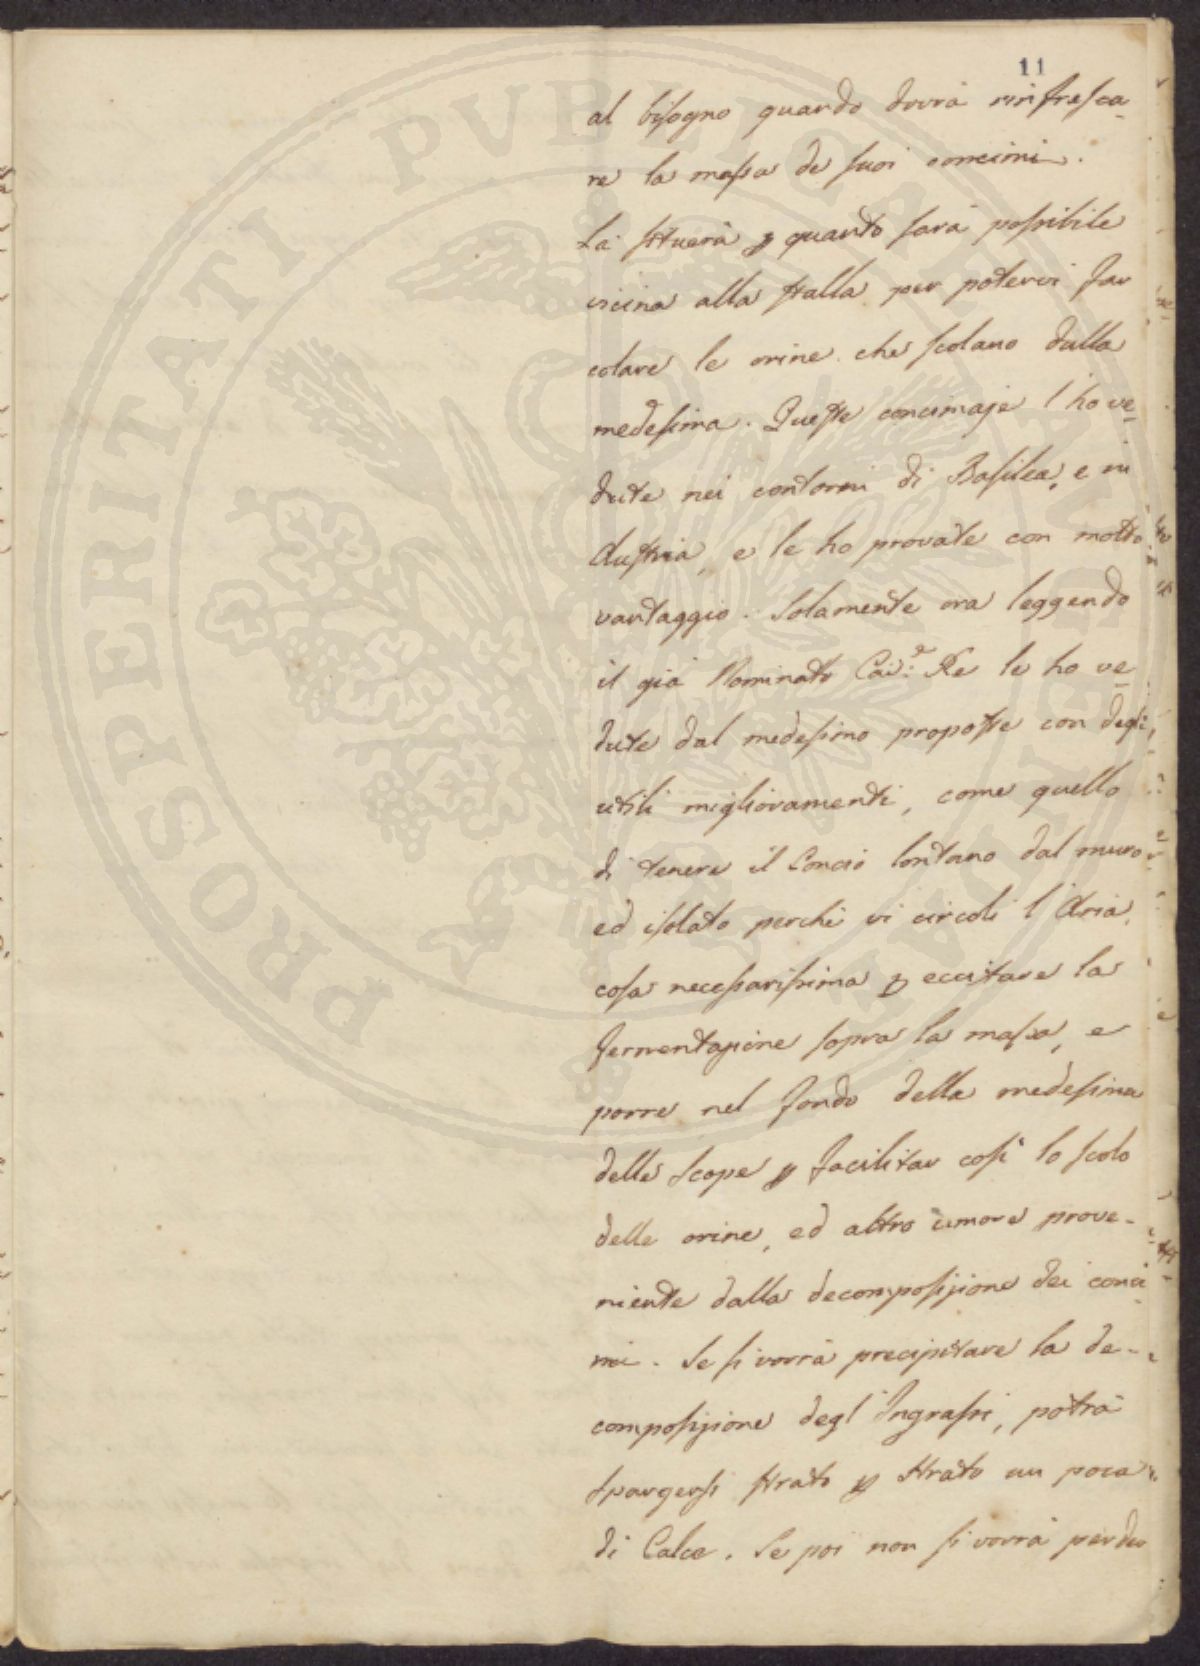 11
al bisogno quando dovrà rinfresca-
re la massa de suoi concimi.
La situerà p quanto sarà possibile
vicina alla stalla per potervi far
colare le orine che scolano dalla
medesima. Queste concimaje l'ho ve-
dute nei contorni di Basilea, e in
Austria, e le ho provate con molto
vantaggio. Solamente ora leggendo
il già Nominato Cav.e Re le ho ve
dute dal medesimo proposte con degli
utili miglioramenti, come quello
di tenere il Concio lontano dal muro
ed isolato perchè vi circoli l'Aria,
cosa necessarissima p eccitare la
fermentazione sopra la massa, e
porre nel fondo della medesima
delle Scope p facilitar così lo scolo
delle orine, ed altro umore prove-
niente dalla decomposizione dei conci
mi. Se si vorrà precipitare la de-
composizione degl'Ingrassi, potrà
spargersi strato p strato un poca
di Calce. Se poi non si vorrà perder
PROSPERITATI PVBLICAE AVGENDAE